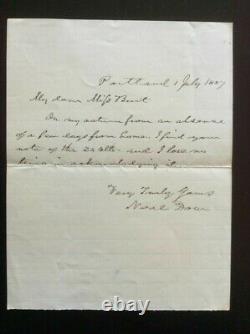 Portland 1 July 1887
My dear Miss Burt
On my return from an absence
of a few days from home. I find your
note of the 28 ulto- and I lose no
time in acknowledging it.
Very Truly Yours
Neal Dow
ebay